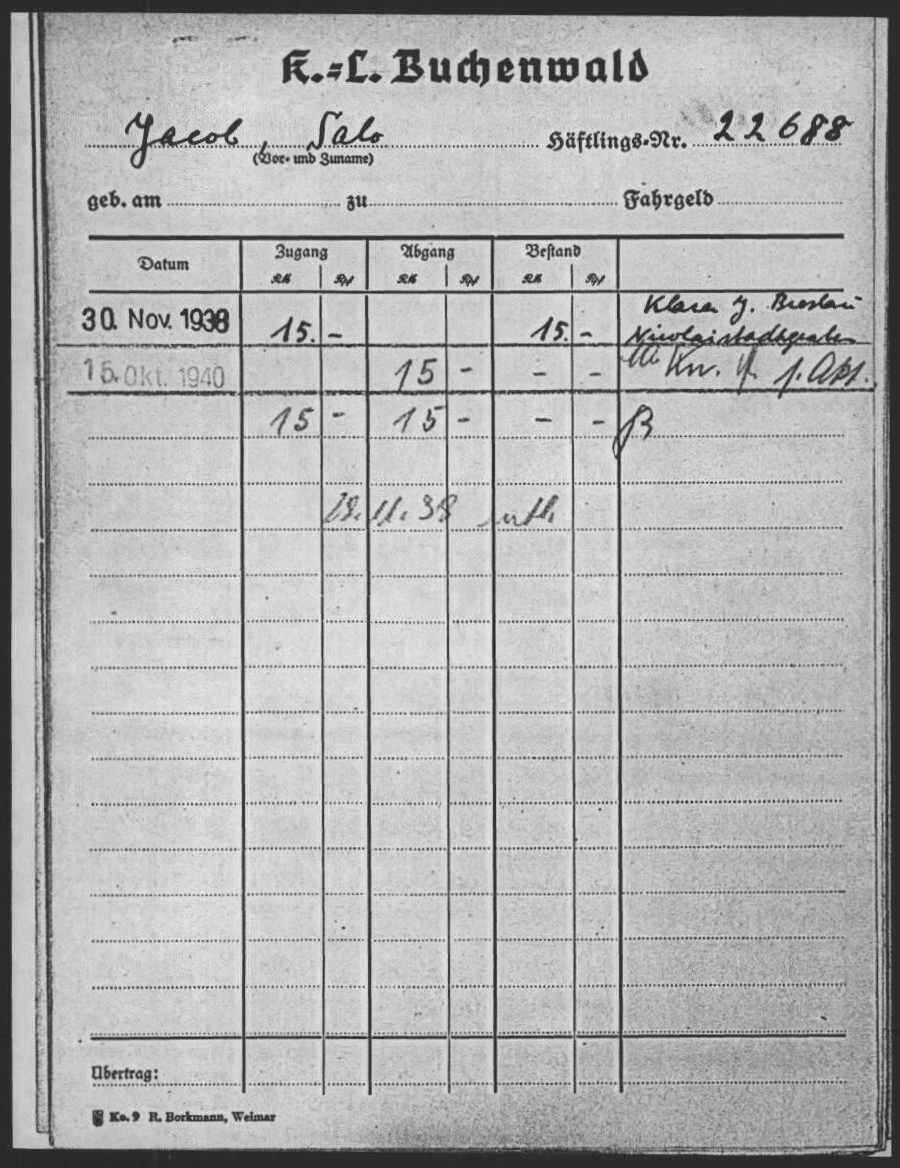 K.=L. Buchenwald
Jacob, Salo Häftlings-Nr. 22688
(Vor- und Zuname)
geb. am zu Fahrgeld
Datum Zugang Abgang Bestand
RM Rpf RM Rpf RM Rpf
Klara J. Breslau
30. Nov. 1938 15. - 15. - Nicolaistadtgraben
15. Okt. 1940 15 - - -
15 - 15 - - -
28.11.38 entl.
Übertrag:
Ko. 9 R. Borkmann, Weimar